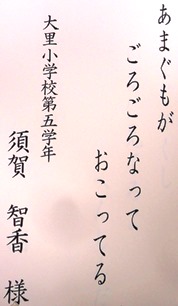 あまぐもが
ごろごろなって
おこってる
大里小学校第五学年
須賀 智香 様